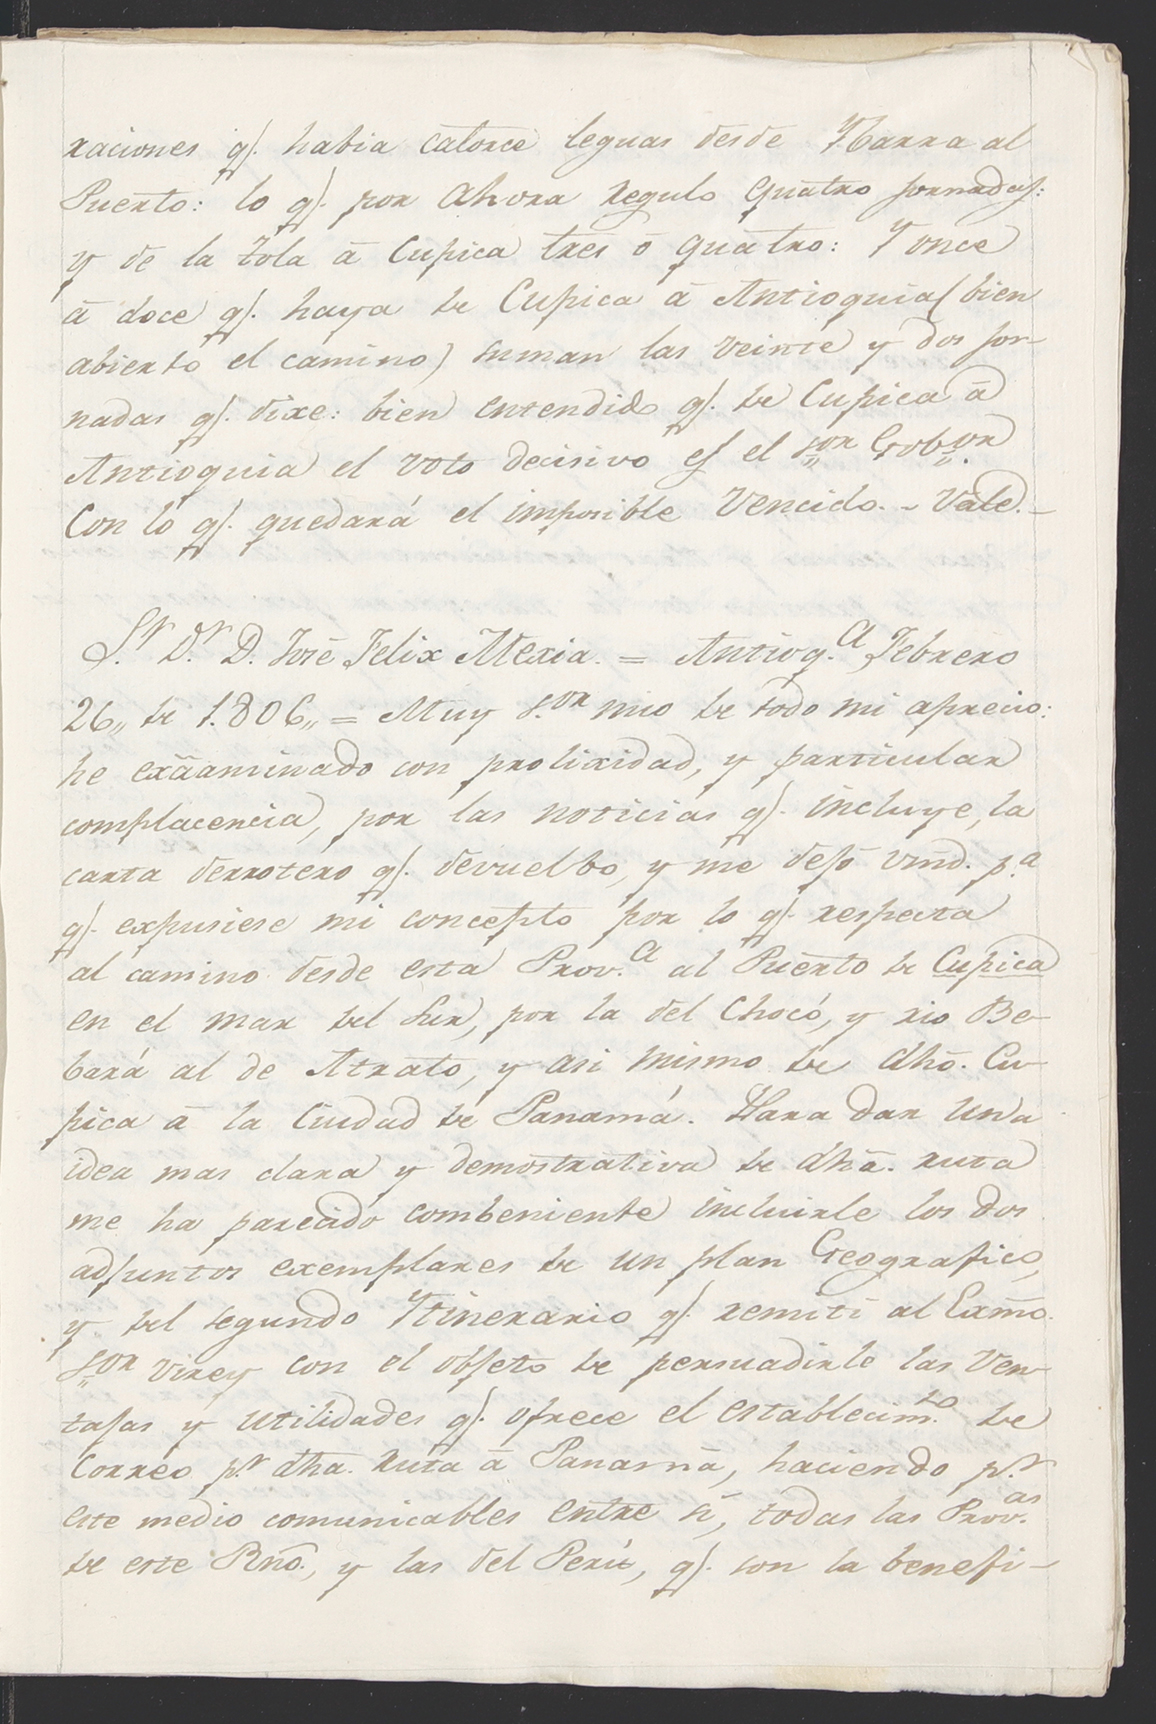 raciones q.e habia catorce leguas desde Ybarra al
Puerto: lo q.e por ahora regulo quatro jornadas:
y de la Tola á Cupica tres ó quatro: Y once
á doce q.e haya de Cupica á Antioquia (bien
abierto el camino) suman las veinte y dos jor-
nadas q.e dixe: bien entendido q.e de Cupica á
Antioquia el voto decisivo es el S.or Gob.or
Con lo q.e quedará el imposible vencido. ~ Vale. -
S.r D.r D. José Felix Mexia. = Antioq.a Febrero
26,, de 1.806,, = Muy S.or mio de todo mi aprecio:
he exâaminado con prolixidad, y particular
complacencia, por las noticias q.e incluye, la
carta derrotero q.e devuelbo, y me dejó vmd. p.a
q.e expusiese mi concepto por lo q.e respecta
al camino desde esta Prov.a al Puerto de Cupica
en el mar del Sur, por la del Chocó, y rio Be-
bará al de Atrato, y asi mismo de dho. Cu-
pica á la Ciudad de Panamá. Para dar una
idea mas clara y demostrativa de dha. ruta
me ha parecido combeniente incluirle los dos
adjuntos exemplares de un plan Geografico,
y del segundo Ytinerario q.e remití al Exmo.
S.or Virey con el objeto de persuadirle las ven-
tajas y utilidades q.e ofrece el establecim.to de
Correo p.r dha. ruta á Panamá, haciendo p.r
este medio comunicables entre sí, todas las Prov.as
de este Rno., y las del Perú, q.e son la benefi-